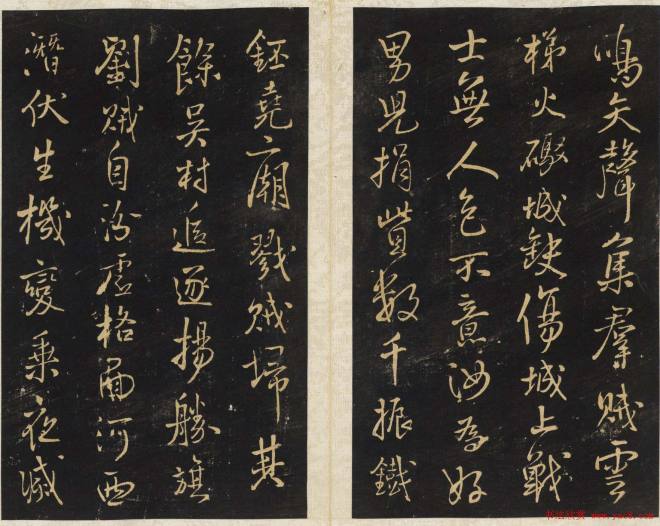 鳴矢聲集羣賊雲
梯火礟城缺傷城上戰
士無人色不意汝為好
男兒捐貲數千振鐵
鉦堯廟戮賊埽其
餘吳村追逐揚勝旗
劉賊自汾虛格鬭河西
潛伏生機變乘夜滅